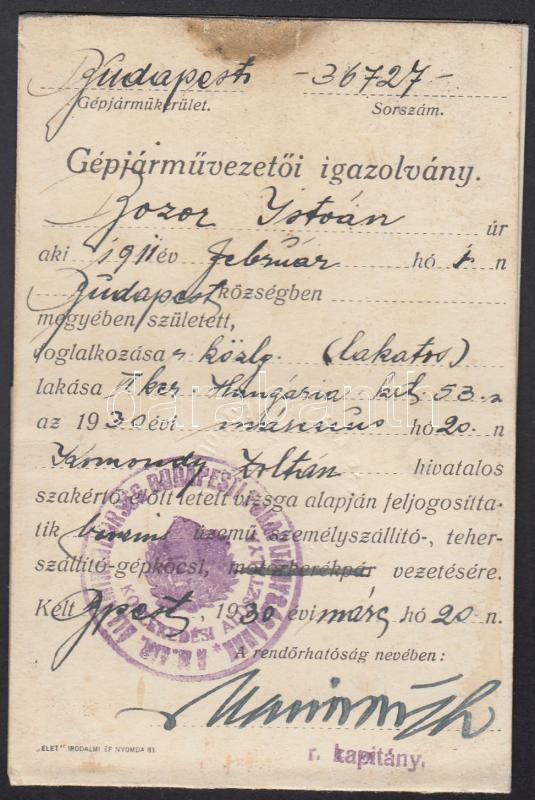 Budapest -36727-
Gépjárműkerület. Sorszám.
Gépjárművezetői igazolvány.
Bozor István úr
aki 1911 év február hó 1-n
Budapest községben
megyében született,
foglalkozása r közlg. (lakatos)
lakása X ker Hungária krt. 53.a
az 1930 évi március hó 20-n
Komondy Zoltán hivatalos
szakértő előtt letett vizsga alapján feljogosítta-
tik benzin üzemű személyszállító-, teher-
szállító-gépkocsi, motorkerékpár vezetésére.
Kelt Bpest, 1930 évi márc hó 20-n.
A rendőrhatóság nevében:
r. kapitány.
„ÉLET" IRODALMI ÉP NYOMDA RT.
KÖZLEKEDÉSI
darabanth